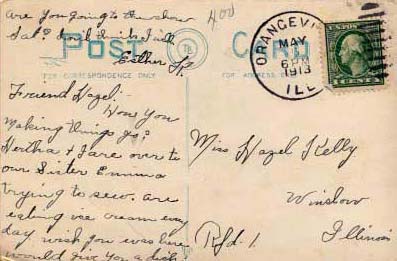 are you going to the show
Sat?
Esther K
400
POST CARD
FOR CORRESPONDENCE ONLY
FOR ADDRESS
ORANGEVI
MAY
6 PM
1913
ILL
Friend Hazel:-
How you
making things go?
Hertha & I are over to
our Sister Emma
trying to sew. are
eating ice cream every
day wish you was here
would give you a dish
Miss Hazel Kelly
Winslow
Rfd. 1. Illinois